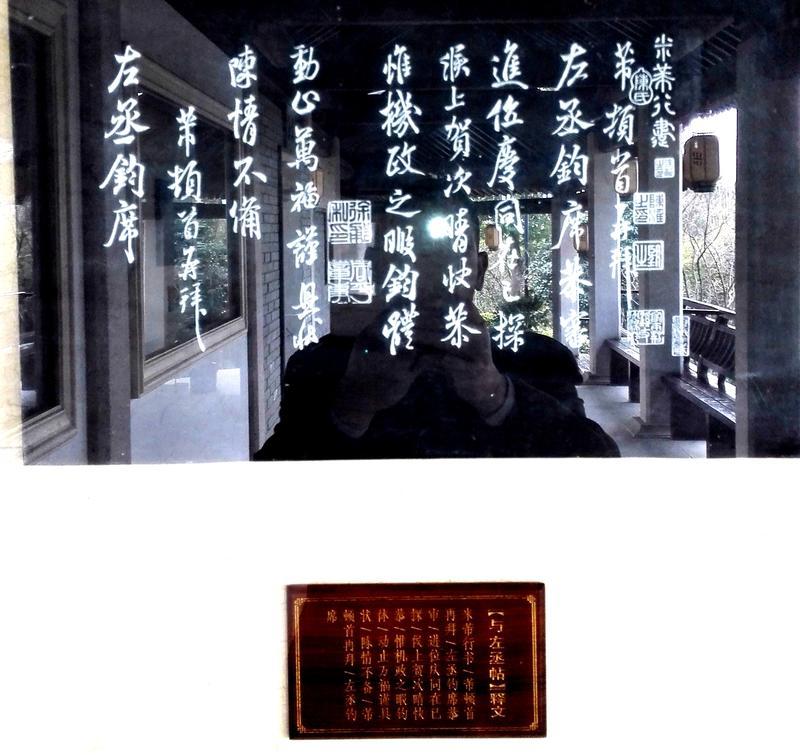 米芾行書
芾頓首再拜
左丞鈞席恭審
進位慶同在已探
上賀次晴快恭
惟機政之暇鈞體
動止萬福謹具狀
陳情不備
芾頓首再拜
左丞鈞席
【与左丞帖】释文
米芾行书/芾顿首
再拜/左丞钧席恭
审/进位庆同在已
探/上贺次晴快
恭/惟机政之暇钧
体/动止万福谨具
状/陈情不备/芾
顿首再拜/左丞钧
席